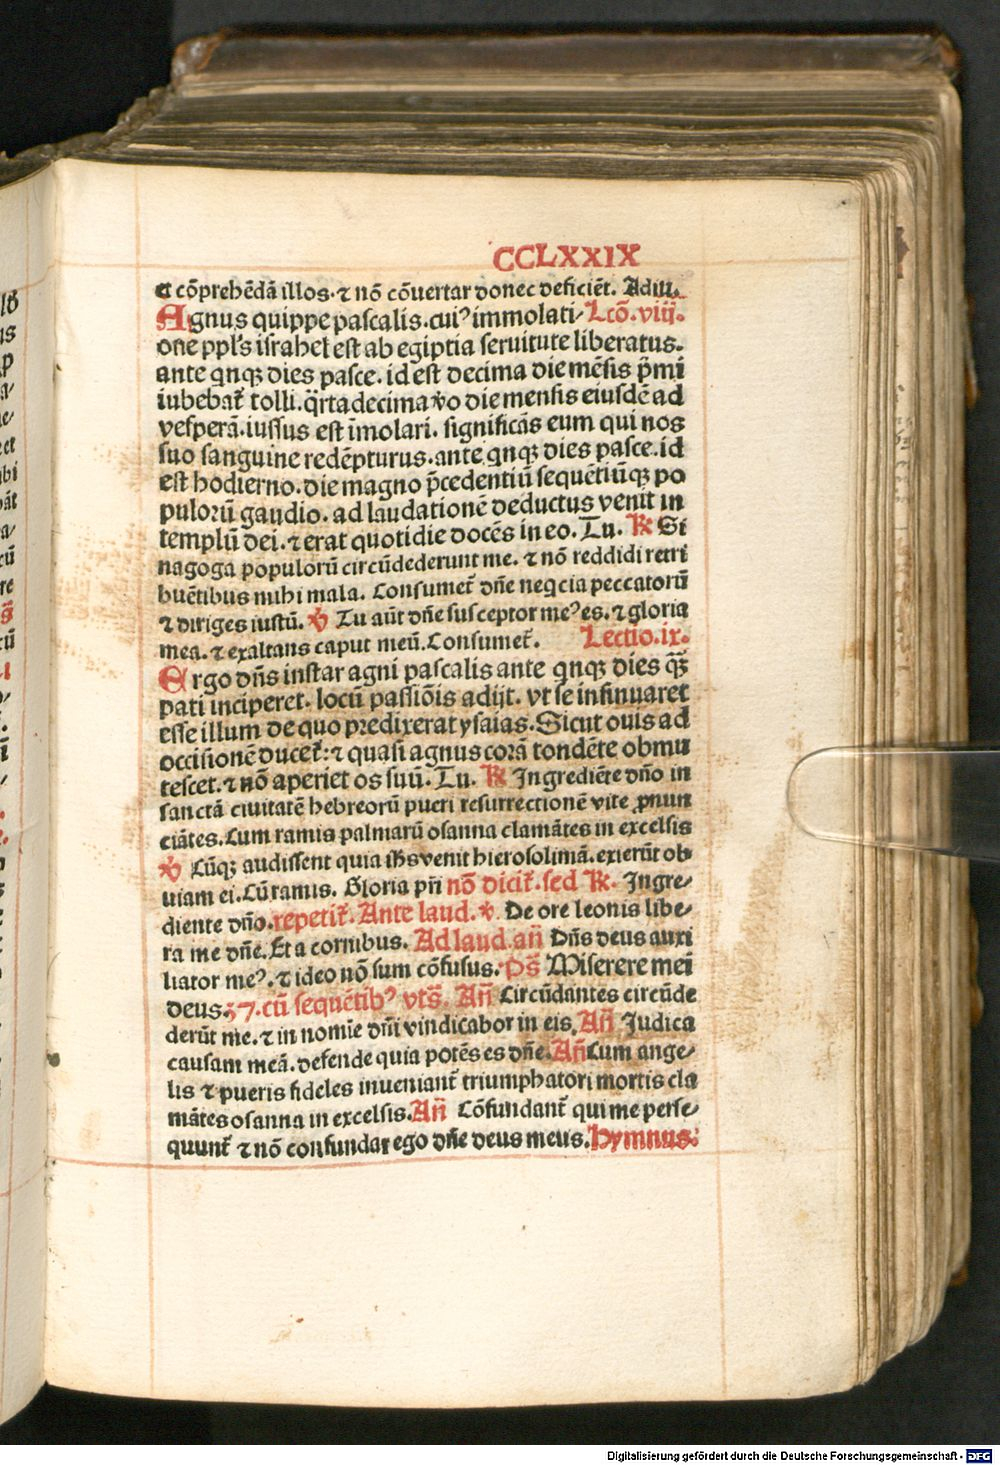 CCLXXIX
et cōprehēdā illos. ⁊ nō cōuertar donec deficiēt. Adiu.
Agnus quippe pascalis. cuiꝰ immolati⸗ Lcō. viij.
one ppl's israhel est ab egiptia seruitute liberatus.
ante qnqꝫ dies pasce. id est decima die mēsis p̄mi
iubebat᷑ tolli. q̄rtadecima v̊o die mensis eiusdē ad
vesperā. iussus est īmolari. significās eum qui nos
suo sanguine redēpturus. ante qnqꝫ dies pasce. id
est hodierno. die magno p̄cedentiū sequētiūqꝫ po
pulorū gaudio. ad laudationē deductus venit in
templū dei. ⁊ erat quotidie docēs in eo. Tu. ℟ Si
nagoga populorū circūdederunt me. ⁊ nō reddidi retri
buētibus mihi mala. Consumet᷑ dn̄e neqcia peccatorū
⁊ diriges iustū. ℣ Tu aūt dn̄e susceptor meꝰ es. ⁊ gloria
mea. ⁊ exaltans caput meū. Consumet᷑. Lectio. ix.
Ergo dn̄s instar agni pascalis ante qnqꝫ dies q̄ꝫ
pati inciperet. locū passiōis adijt. vt se insinuaret
esse illum de quo predixerat ysaias. Sicut ouis ad
occisionē ducet᷑: ⁊ quasi agnus corā tondēte obmu
tescet. ⁊ nō aperiet os suū. Tu. ℟ Ingrediēte dn̄o in
sanctā ciuitatē hebreorū pueri resurrectionē vite ꝓnun
ciātes. Cum ramis palmarū osanna clamātes in excelsis
℣ Cūqꝫ audissent quia ih̄s venit hierosolimā. exierūt ob
uiam ei. Cū ramis. Gloria pr̄i nō dicit᷑. sed ℟. Ingre⸗
diente dn̄o. repetit᷑. Ante laud. ℣. De ore leonis libe⸗
ra me dn̄e. Et a cornibus. Ad laud. an̄ Dn̄s deus auxi
liator meꝰ. ⁊ ideo nō sum cōfusus. Ps̄ Miserere mei
deus. 37. cū sequētibꝰ vts̄. An̄ Circūdantes circūde
derūt me. ⁊ in nomīe dn̄i vindicabor in eis. An̄ Judica
causam meā. defende quia potēs es dn̄e. An̄ Cum ange⸗
lis ⁊ pueris fideles inueniant᷑ triumphatori mortis cla
mātes osanna in excelsis. An̄ Cōfundant᷑ qui me perse⸗
quunt᷑ ⁊ nō confundar ego dn̄e deus meus. Hymnus:
Digitalisierung gefördert durch die Deutsche Forschungsgemeinschaft - DFG